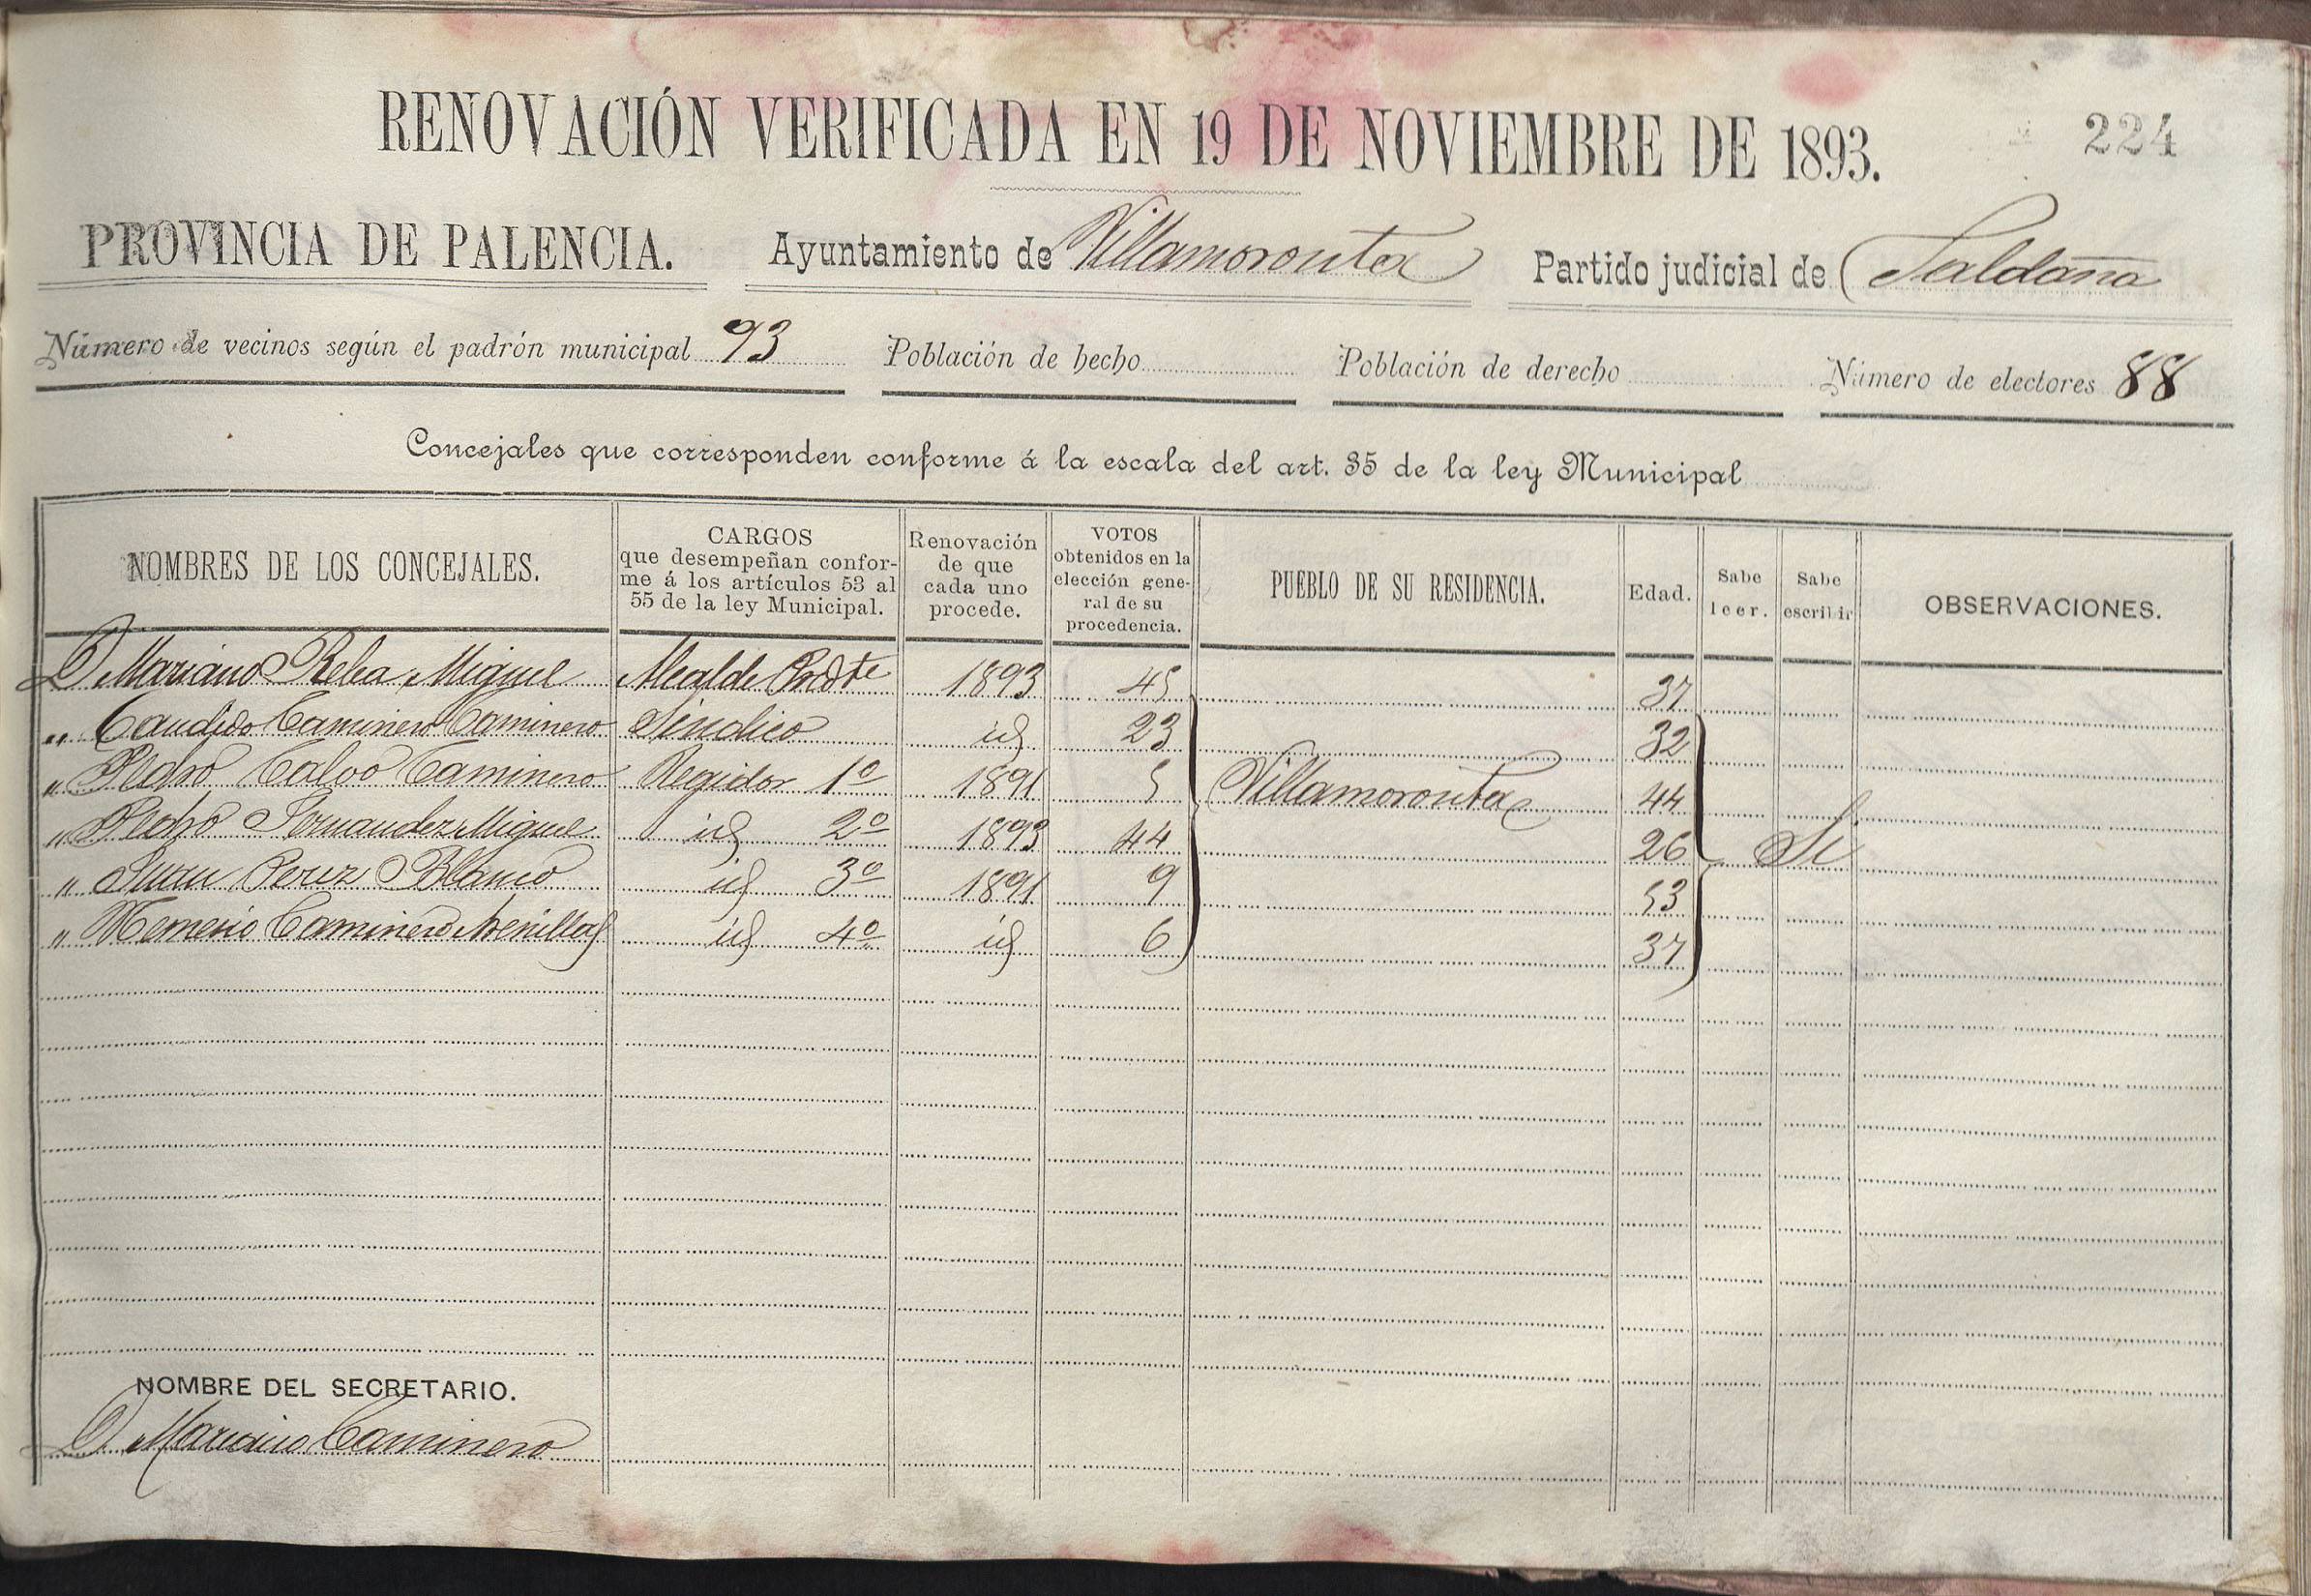 RENOVACIÓN VERIFICADA EN 19 DE NOVIEMBRE DE 1893. 224
PROVINCIA DE PALENCIA. Ayuntamiento de Villamoronta Partido judicial de Saldaña
Número de vecinos según el padrón municipal 93 Población de hecho Población de derecho Número de electores 88
Concejales que corresponden conforme á la escala del art. 35 de la ley Municipal
NOMBRES DE LOS CONCEJALES.
CARGOS
que desempeñan confor-
me á los artículos 53 al
55 de la ley Municipal.
Renovación
de que
cada uno
procede.
VOTOS
obtenidos en la
elección gene-
ral de su
procedencia.
PUEBLO DE SU RESIDENCIA.
Edad.
Sabe
leer.
Sabe
escribir
OBSERVACIONES.
D Mariano Relea Miguel Alcalde Presdte 1893 45 37
" Candido Caminero Caminero Sindico id 23 32
" Pedro Calvo Caminero Regidor 1º 1891 5 Villamoronta 44
" Pedro Fernandez Miguel id 2º 1893 44 26 Si
" Juan Perez Blanco id 3º 1891 9 53
" Nemesio Caminero Arenillas id 4º id 6 37
NOMBRE DEL SECRETARIO.
D Mariano Caminero